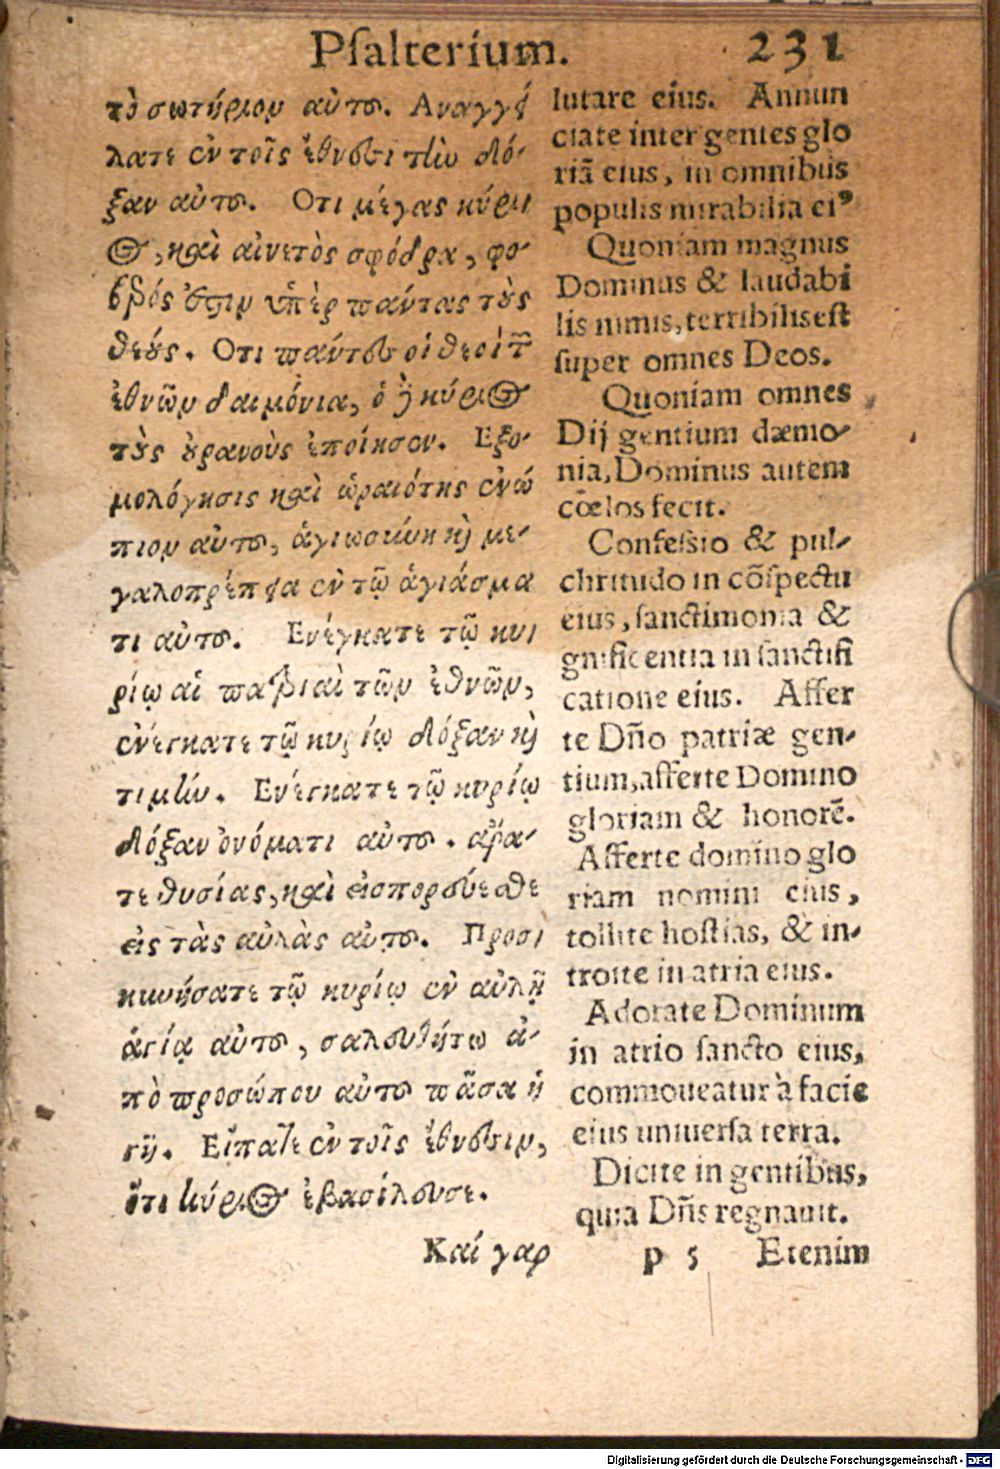 Psalterium. 231
τὸ σωτήριον αὐτοῦ. Αναγγεί
λατε ἐν τοῖς ἔθνεσι τὴν δό-
ξαν αὐτοῦ. Οτι μέγας κύρι
ος, καὶ αἰνετὸς σφόδρα, φο-
βερός ἐστιν ὑπὲρ πάντας τοὺς
θεούς. Οτι πάντες οἱ θεοὶ τῶν
ἐθνῶν δαιμόνια, ὁ δὲ κύριος
τοὺς οὐρανοὺς ἐποίησεν. Εξο-
μολόγησις καὶ ὡραιότης ἐνώ
πιον αὐτοῦ, ἁγιωσύνη καὶ με-
γαλοπρέπεια ἐν τῷ ἁγιάσμα
τι αὐτοῦ. Ενέγκατε τῷ κυ
ρίῳ αἱ πατριαὶ τῶν ἐθνῶν,
ἐνέγκατε τῷ κυρίῳ δόξαν καὶ
τιμήν. Ενέγκατε τῷ κυρίῳ
δόξαν ὀνόματι αὐτοῦ. ἄρα-
τε θυσίας, καὶ εἰσπορεύεσθε
εἰς τὰς αὐλὰς αὐτοῦ. Προσ
κυνήσατε τῷ κυρίῳ ἐν αὐλῇ
ἁγίᾳ αὐτοῦ, σαλευθήτω ἀ-
πὸ προσώπου αὐτοῦ πᾶσα ἡ
γῆ. Εἴπατε ἐν τοῖς ἔθνεσιν,
ὅτι κύριος ἐβασίλευσε.
Καί γαρ
lutare eius. Annun
ciate inter gentes glo
riã eius, in omnibus
populis mirabilia eiꝰ
Quoniam magnus
Dominus & laudabi
lis nimis, terribilis est
super omnes Deos.
Quoniam omnes
Dij gentium dæmo-
nia, Dominus autem
cœlos fecit.
Confessio & pul-
chritudo in cõspectu
eius, sanctimonia &
gnificentia in sanctifi
catione eius. Affer
te Dño patriæ gen-
tium, afferte Domino
gloriam & honorẽ.
Afferte domino glo
riam nomini eius,
tollite hostias, & in-
troite in atria eius.
Adorate Dominum
in atrio sancto eius,
commoueatur à facie
eius uniuersa terra.
Dicite in gentibus,
quia Dñs regnauit.
p 5 Etenim
Digitalisierung gefördert durch die Deutsche Forschungsgemeinschaft - DFG